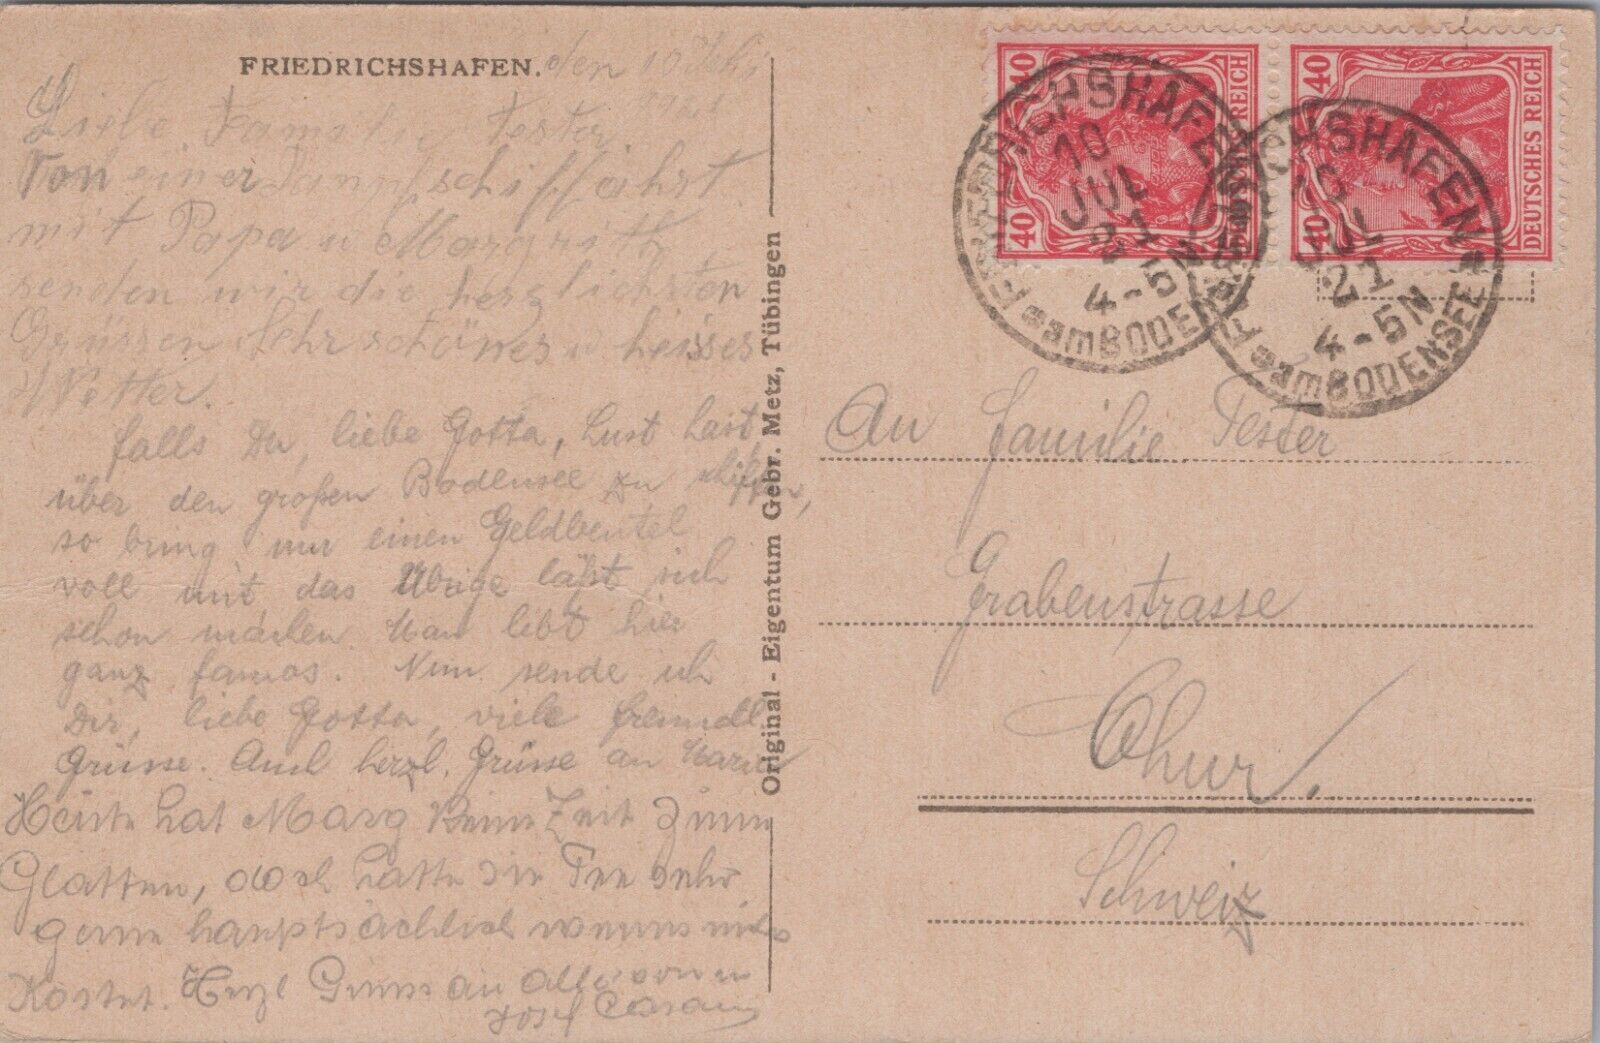 FRIEDRICHSHAFEN. den 10 Juli
1921
Liebe Familie Tester
Von einer Dampfschiffahrt
mit Papa u Margrith
senden wir die herzlichsten
Grüssen Sehr schönes u heisses
Wetter.
falls Du, liebe Gotta, Lust hast
über den großen Bodensee zu schiffen,
so bring nur einen Geldbeutel
voll mit das Übrige läßt sich
schon machen. Man lebt hier
ganz famos. Nun sende ich
Dir, liebe Gotta, viele freundl.
Grüsse. Auch herzl. Grüsse an Marie
hat Marg keine Zeit zum
Glatten, doch hatte sie Tee sehr
gerne hauptsächlich wenns nichs
Kostet. Herzl Grüsse an alle von
Josef
Original - Eigentum Gebr. Metz, Tübingen
40 40 DEUTSCHES REICH
40 40 DEUTSCHES REICH
FRIEDRICHSHAFEN
10
JUL
21
4-5N
am BODENSEE
FRIEDRICHSHAFEN
10
JUL
21
4-5N
am BODENSEE
An Familie Tester
Grabenstrasse
Chur.
Schweiz